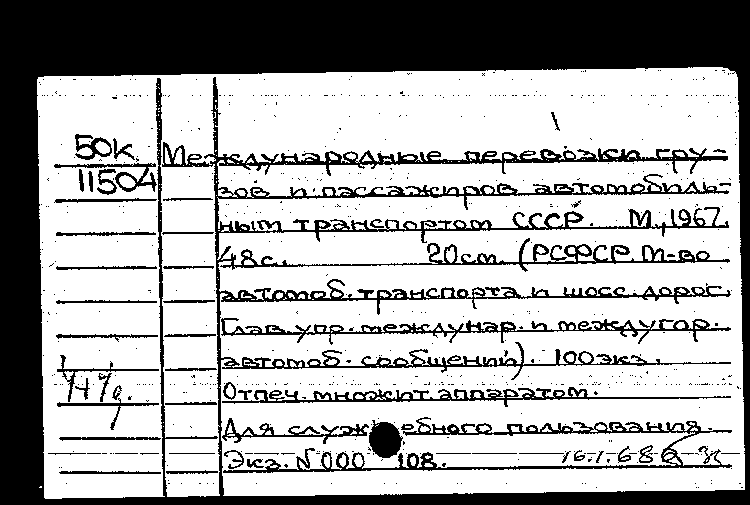 50К Международные перевозки гру-
11504 зов и пассажиров автомобиль-
ным транспортом СССР. М., 1967.
48с. 20см. (РСФСР. М-во
автомоб. транспорта и шосс. дорог.
Глав. упр. междунар. и междугор.
автомоб. сообщений). 100экз.
Отпеч. множит. аппаратом.
Для служебного пользования.
Экз. №000108. 16.1.68